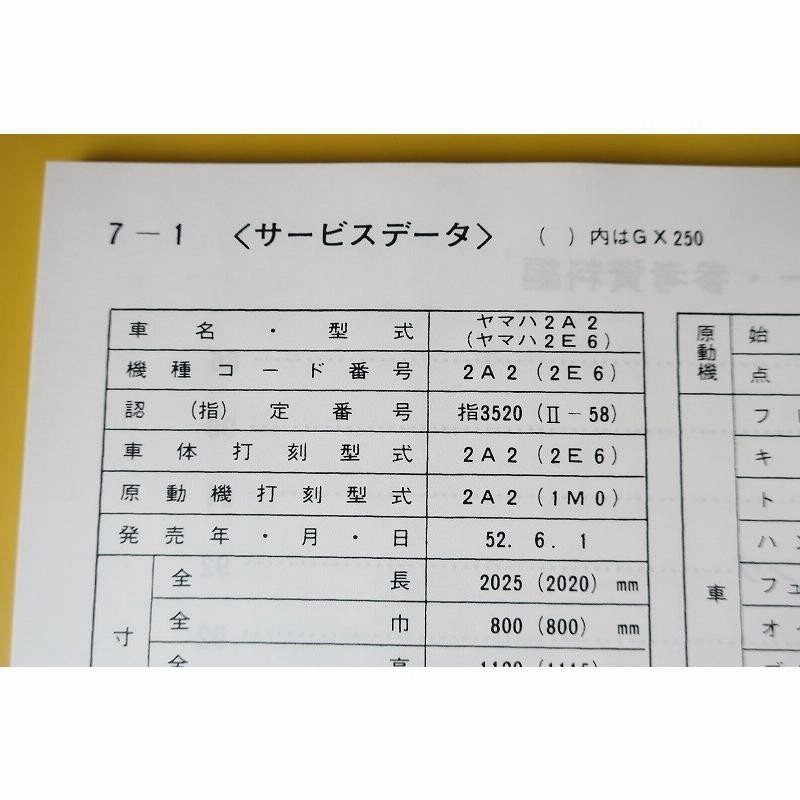 7－1 〈サービスデータ〉 (　) 内はGX250
車名・型式 ヤマハ2A2
(ヤマハ2E6)
機種コード番号 2A2 (2E6)
認(指)定番号 指3520 (Ⅱ－58)
車体打刻型式 2A2 (2E6)
原動機打刻型式 2A2 (1M0)
発売年・月・日 52. 6. 1
寸
全長 2025 (2020) mm
全巾 800 (800) mm
原動機
始
点
車
フ
キ
ト
ハン
フェ
オイ